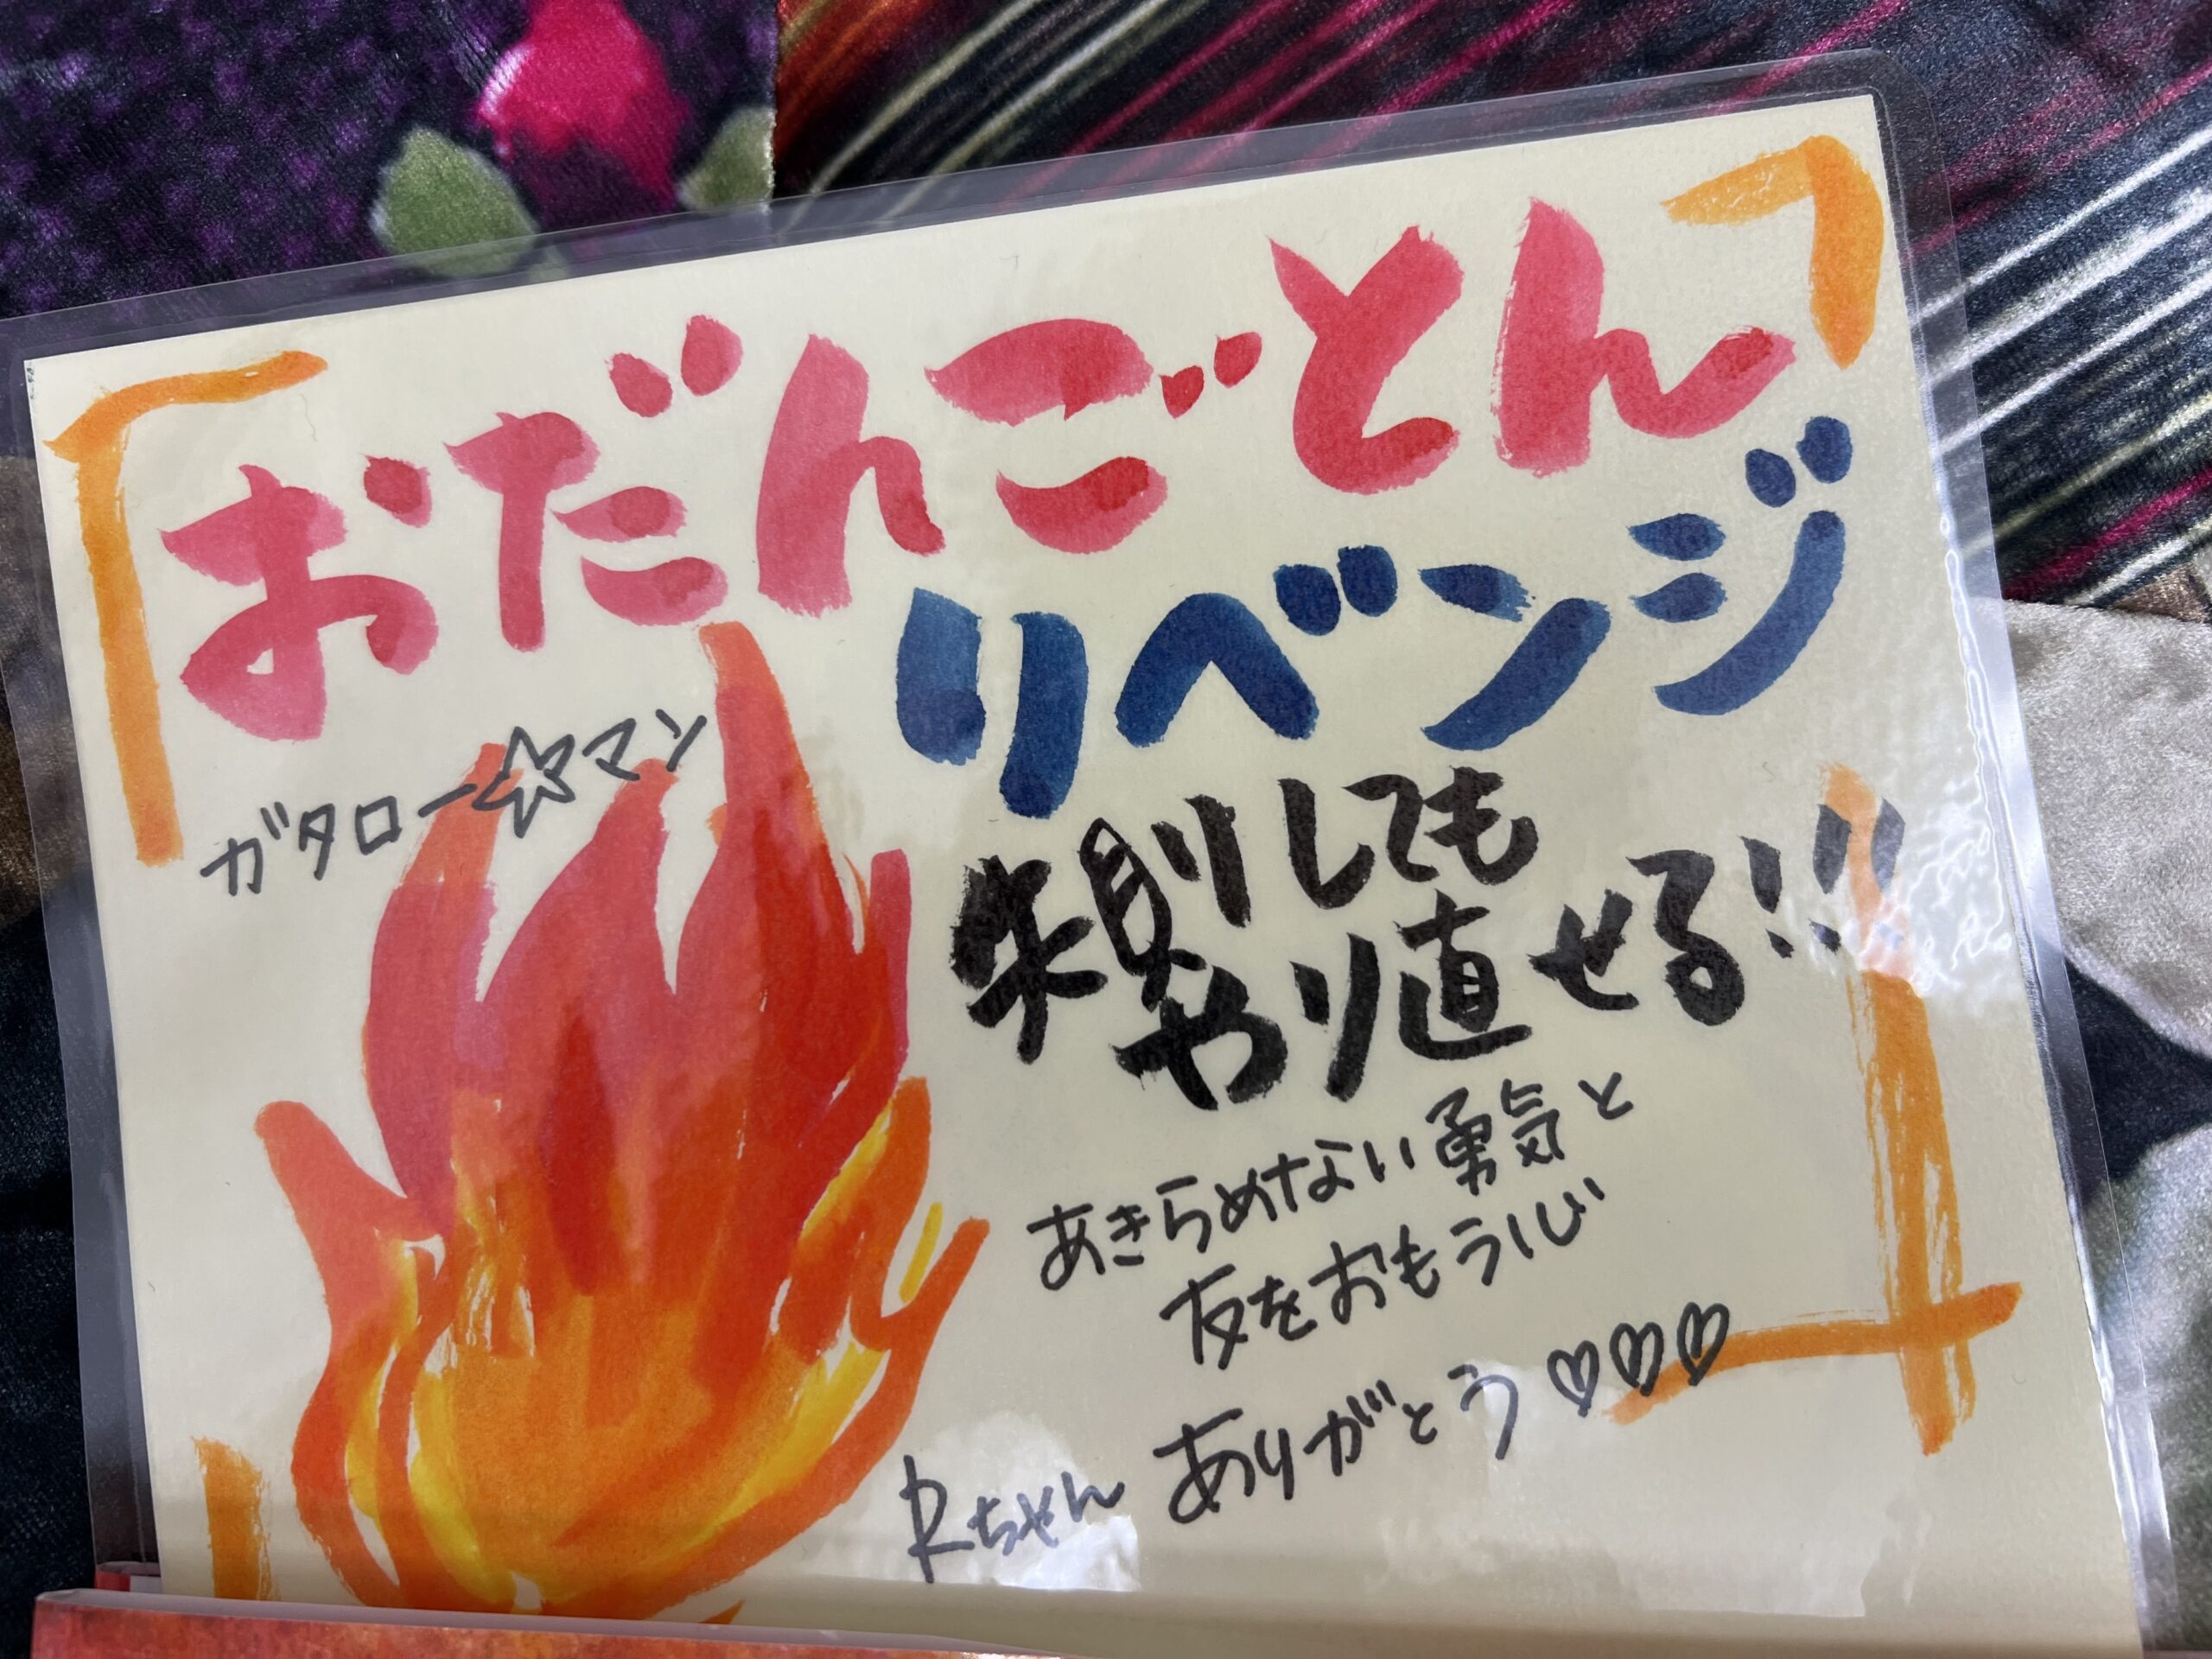 おだんごとん
リベンジ
ガタロー☆マン
失則しても
やり直せる!!
あきらめない勇気と
友をおもう心
ありがとう♡♡♡
Rちゃん